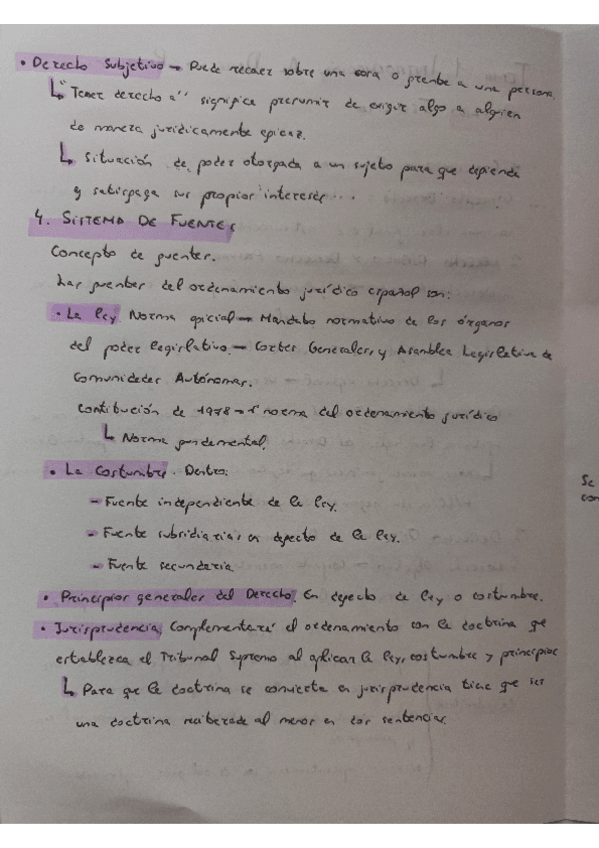 • Derecho Subjetivo → Puede recaer sobre una cosa o frente a una persona.
↳ "Tener derecho a" significa presumir de exigir algo a alguien
de manera jurídicamente eficaz.
↳ Situación de poder otorgada a un sujeto para que defienda
y satisfaga sus propios intereses...
4. SISTEMA DE FUENTES
Concepto de fuentes.
Las fuentes del ordenamiento jurídico español son:
• La ley. Norma oficial → Mandato normativo de los órganos
del poder legislativo. → Cortes Generales, y Asamblea Legislativa de
Comunidades Autónomas.
Contitución de 1978 → 1ª norma del ordenamiento jurídico
↳ Norma fundamental.
• La Costumbre. Dentro:
- Fuente independiente de la ley.
- Fuente subsidiaria: en defecto de la ley.
- Fuente secundaria.
• Principios generales del Derecho. En defecto de ley o costumbre.
• Jurisprudencia. Complementará el ordenamiento con la doctrina que
establezca el Tribunal Supremo al aplicar la ley, costumbre y principios
↳ Para que la doctrina se convierta en jurisprudencia tiene que ser
una doctrina reiterada al menos en dos sentencias.
Se
con